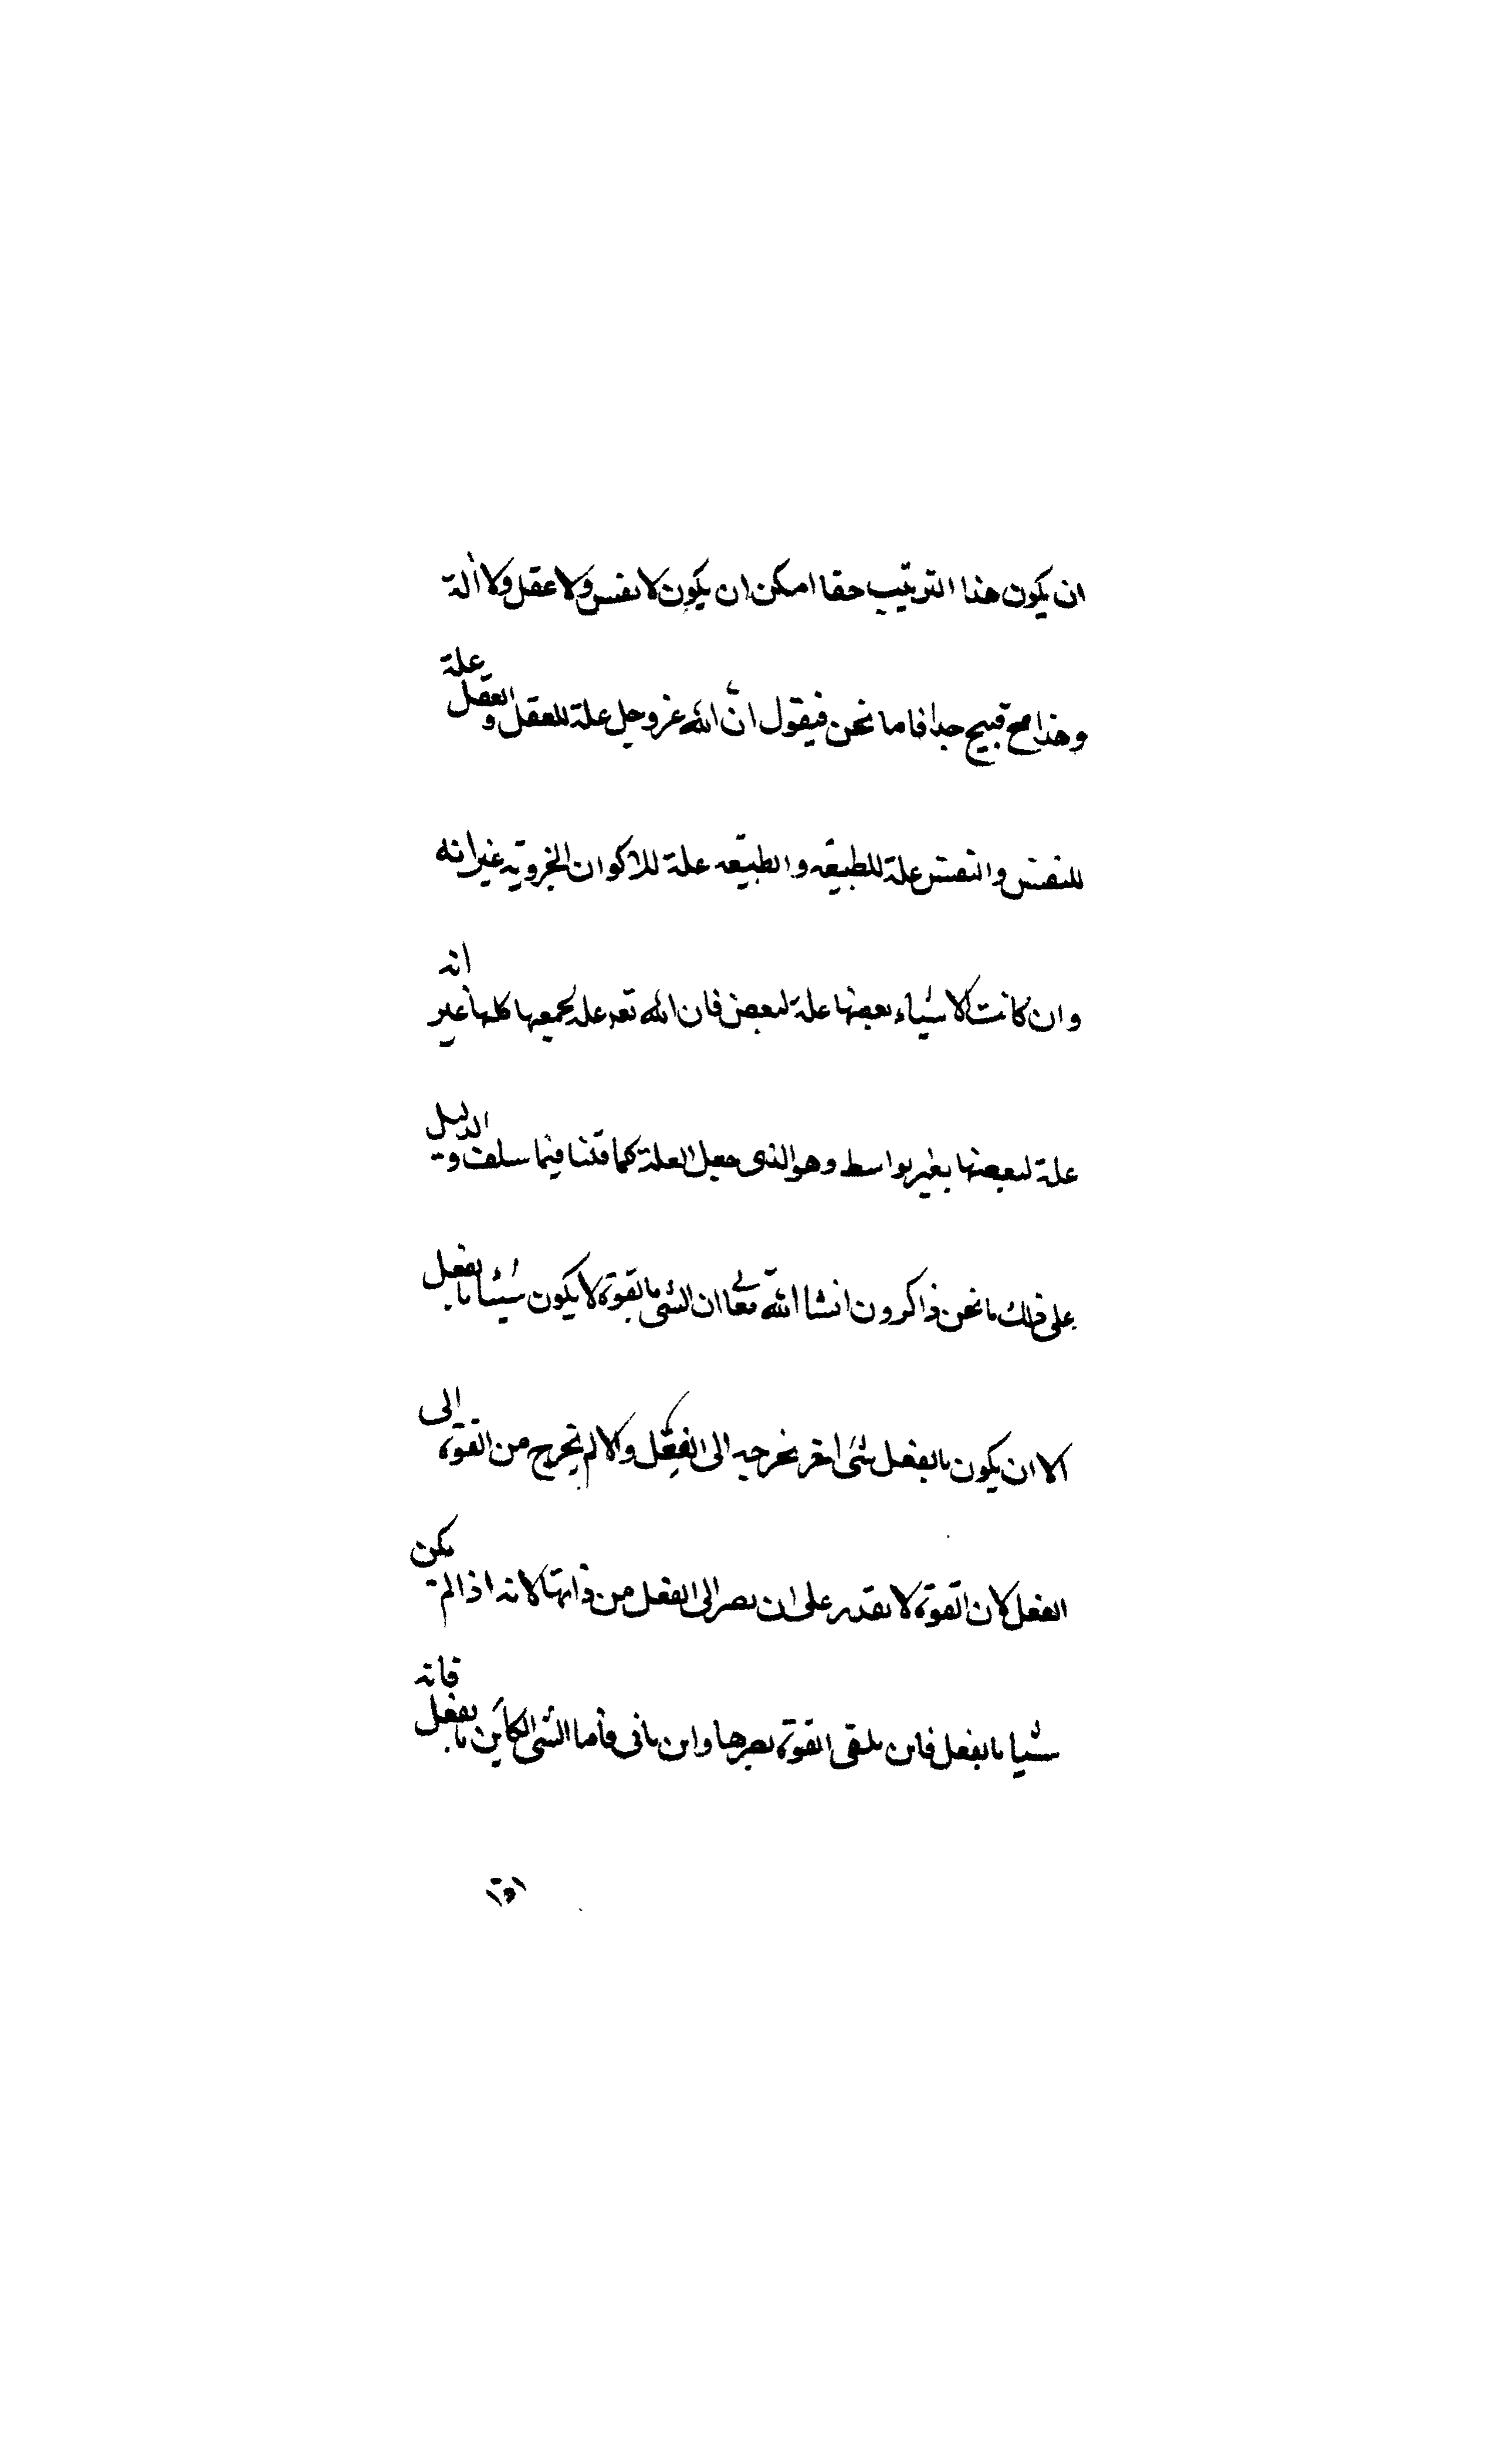 ان يكون هذا الترتيب حقا امكن ان يكون لا نفس ولا عقل ولا اله
وهذا مح قبيح جدا فاما نحن فيقول انّ الله عز وجل علة للعقل والعقل علة
للنفس والنفس علة للطبيعه والطبيعه علة للاكوان الجزويه غير انه
وان كانت الاشياء بعضها علة لبعض فان الله تعه علة لجميعها كلها غير انه
علة لبعضها بغير بواسط وهو الذى جعل العلة كما قلنا فيما سلف والدليل
على ذلك ما نحن ذاكرون انشا الله تعا ان الشى بالقوة لا يكون شيئا بالفعل
الا ان يكون بالفعل شى اخر يخرجه الى الفعل والا لم يخرج من القوة الى
الفعل لان القوة لا تقدر على ان تصير الى الفعل من ذاتها لانه اذا لم يكن
شيا بالفعل فاين يلقى القوة بصرها واين ياتى فاما الشى الكاين بالفعل فانه